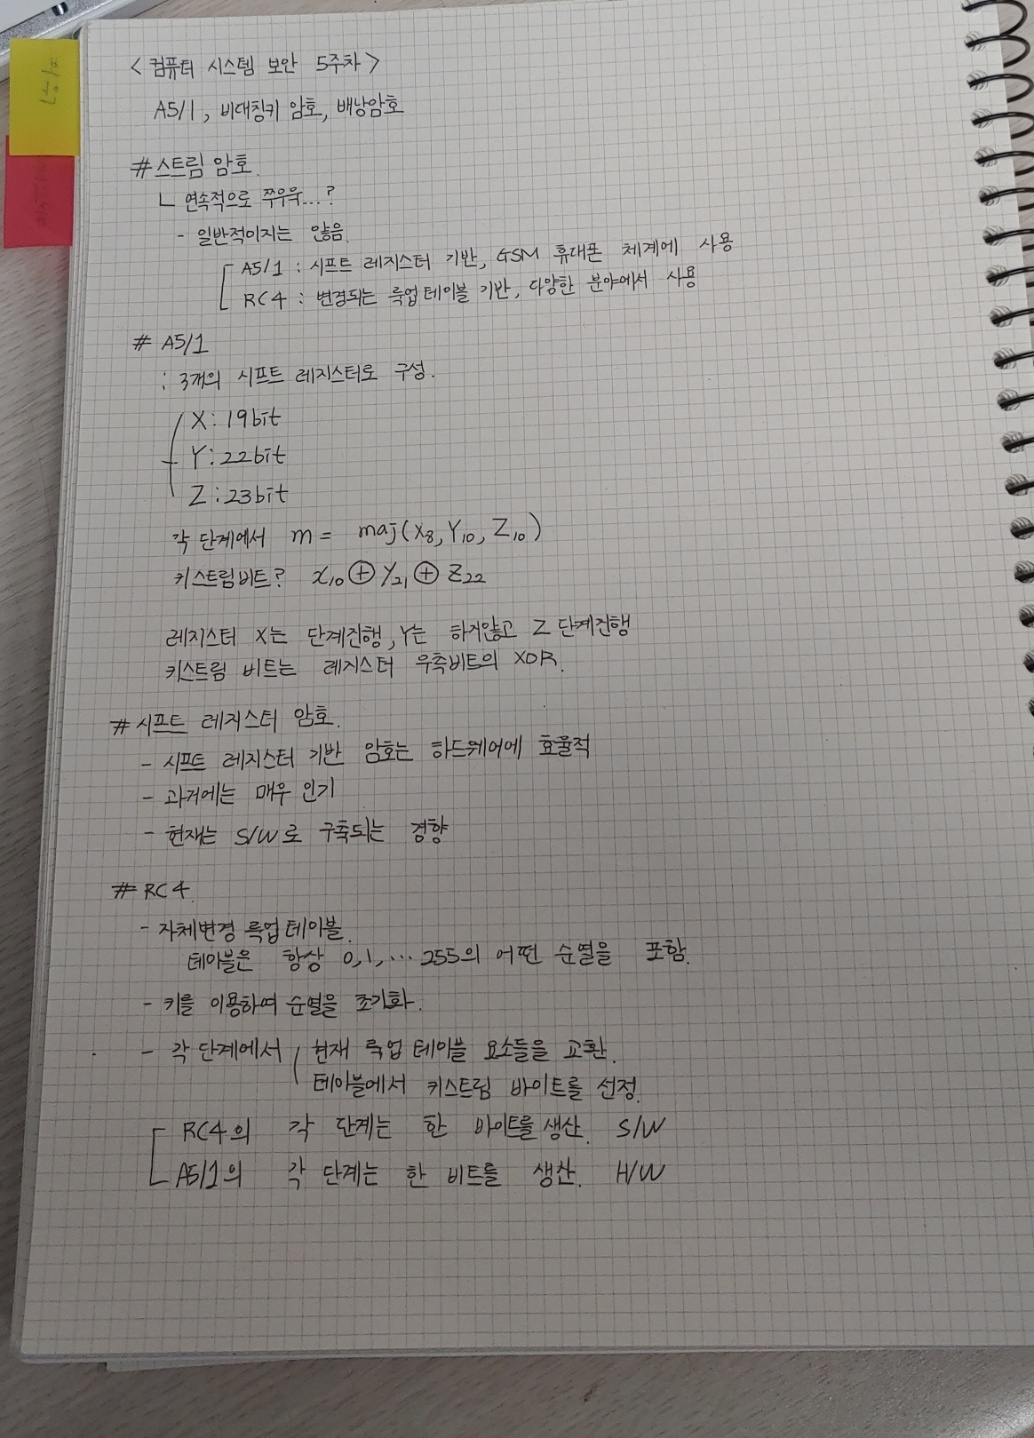 <컴퓨터 시스템 보안 5주차>
A5/1, 비대칭키 암호, 배낭암호
# 스트림 암호.
ㄴ 연속적으로 쭈우욱...?
- 일반적이지는 않음.
A5/1 : 시프트 레지스터 기반, GSM 휴대폰 체계에 사용
RC4 : 변경되는 룩업테이블 기반, 다양한 분야에서 사용
# A5/1
: 3개의 시프트 레지스터로 구성.
X: 19bit
Y: 22bit
Z: 23bit
각 단계에서 m = maj(X8, Y10, Z10)
키스트림비트? x10 ⊕ Y21 ⊕ Z22
레지스터 X는 단계진행, Y는 하지않고 Z 단계진행
키스트림 비트는 레지스터 우측비트의 XOR.
# 시프트 레지스터 암호.
- 시프트 레지스터 기반 암호는 하드웨어에 효율적
- 과거에는 매우 인기
- 현재는 S/W로 구축되는 경향
# RC4.
- 자체변경 룩업테이블.
테이블은 항상 0,1,...255의 어떤 순열을 포함.
- 키를 이용하여 순열을 초기화.
- 각 단계에서 현재 룩업 테이블 요소들을 교환.
테이블에서 키스트림 바이트를 선정.
RC4의 각 단계는 한 바이트를 생산. S/W
A5/1의 각 단계는 한 비트를 생산. H/W